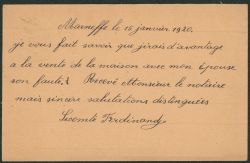 Marneffe le 15 janvier 1920.
je vous fait savoir que j'irais d'avantage
a la vente de la maison avec mon épouse
son faute, Recevé Monsieur le notaire
mais sincère salutations distinguées
Lecomte Ferdinand